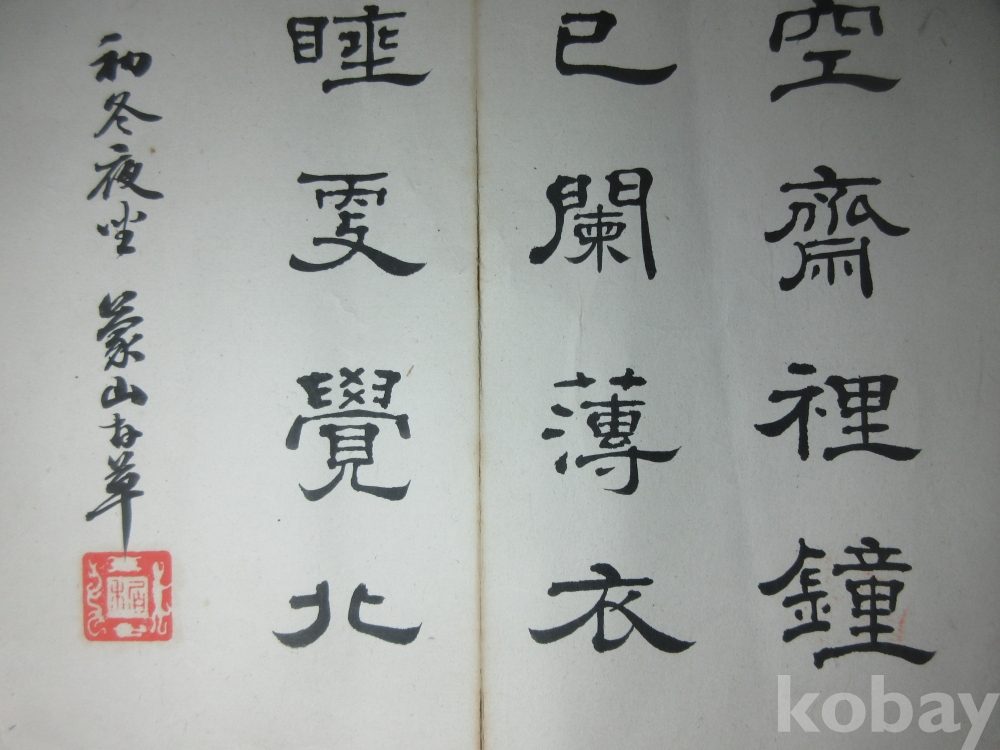 空齋裡鐘
已闌薄衣
睡更覺北
初冬夜坐 蒙山古草
kobay